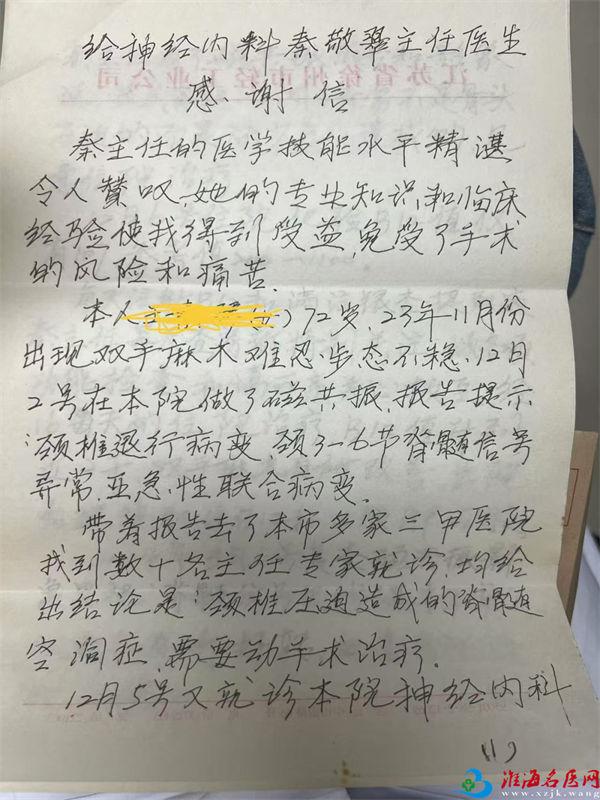 给神经内科秦敬翠主任医生
江苏省徐州市轻工业公司
感谢信
秦主任的医学技能水平精湛
令人赞叹,她的专业知识和临床
经验使我得到受益,免受了手术
的风险和痛苦.
本人 72岁,23年11月份
出现双手麻木难忍,步态不稳,12月
2号在本院做了磁共振,报告提示
:颈椎退行病变,颈3-6节脊髓信号
异常,亚急性联合病变.
带着报告去了本市多家三甲医院
找到数十名主任专家就诊,均给
出结论是:颈椎压迫造成的脊髓
空洞症,需要动手术治疗.
12月5号又就诊本院神经内科
淮海名医网
www.xzjk.wang